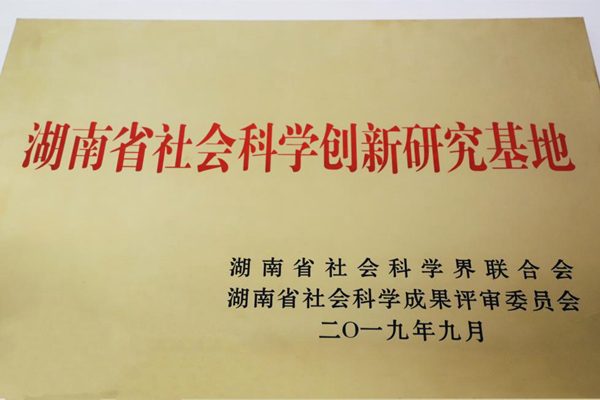 湖南省社会科学创新研究基地
湖南省社会科学界联合会
湖南省社会科学成果评审委员会
二〇一九年九月